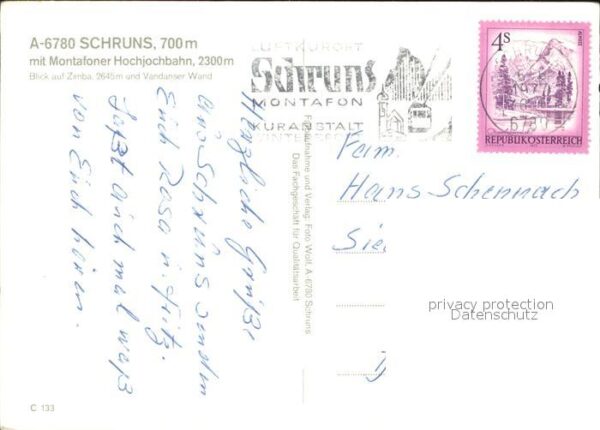 A-6780 SCHRUNS, 700 m
mit Montafoner Hochjochbahn, 2300 m
Blick auf Zimba, 2645 m und Vandanser Wand
LUFTKURORT
Schruns
MONTAFON
KURANSTALT
WINTERSPORT
4s
REPUBLIK ÖSTERREICH
6780
Herzliche Grüße
aus Schruns senden
Euch Rosa u. Fritz.
Laßt auch mal was
von Euch hören.
Fotoaufnahme und Verlag: Foto Wolf, A-6780 Schruns
Das Fachgeschäft für Qualitätsarbeit
Fam.
Hans Schennach
privacy protection
Datenschutz
C 133